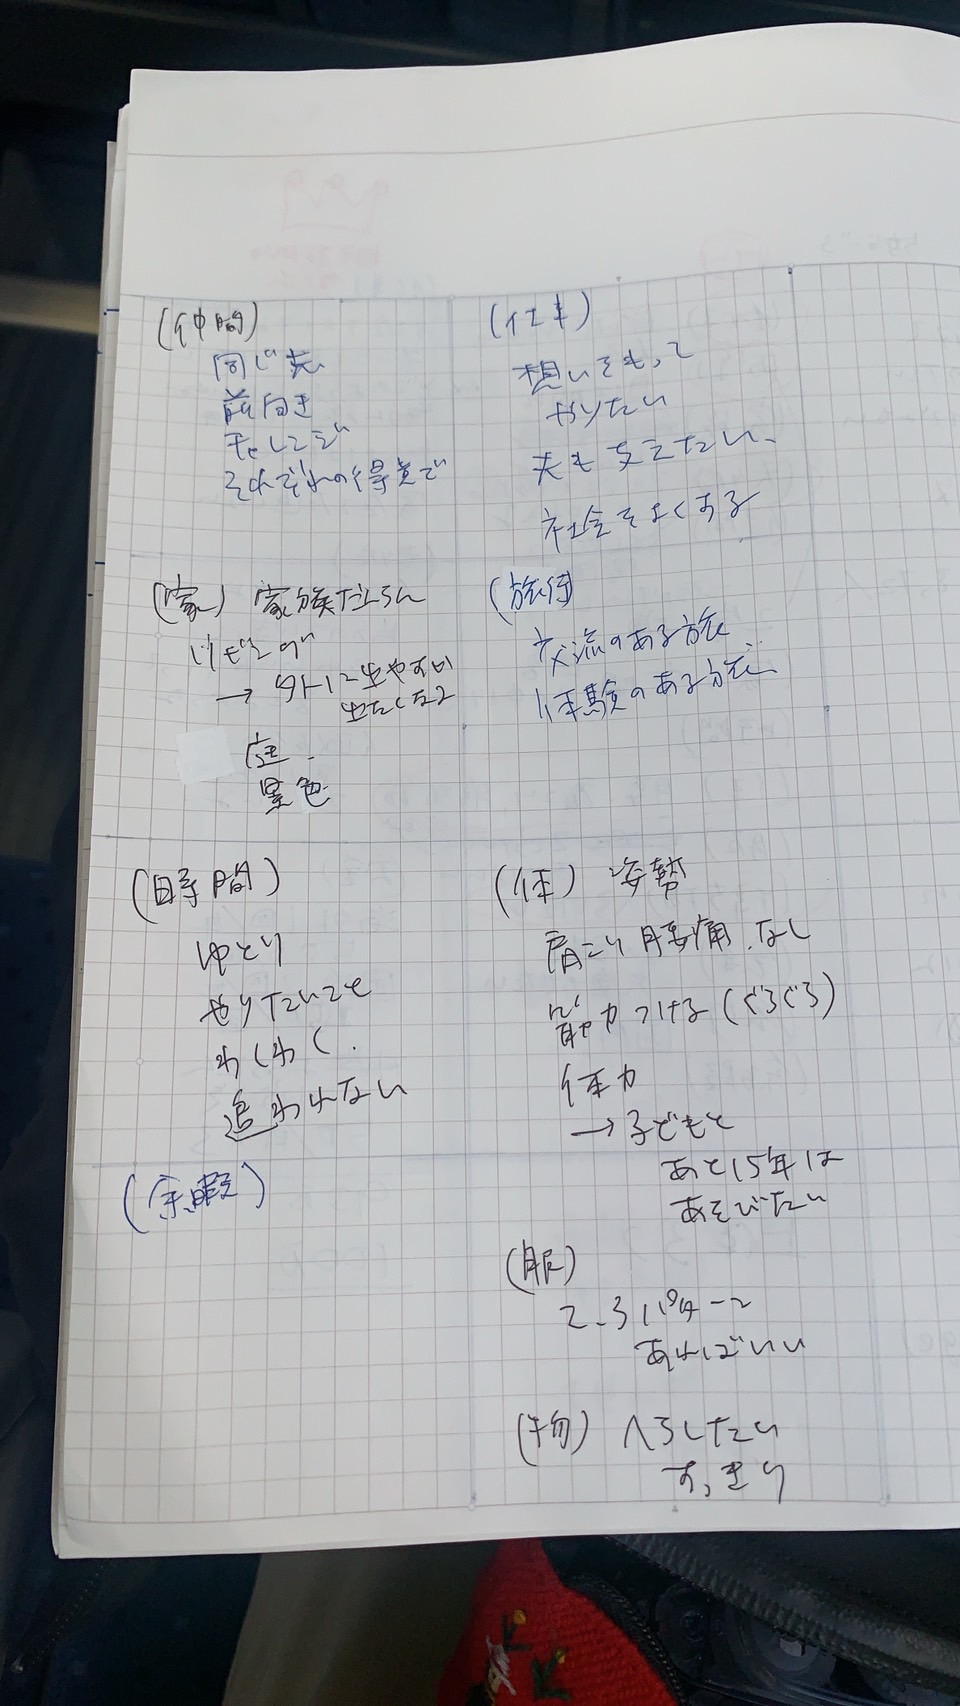 (仲間)
同じ志
前向き
チャレンジ
それぞれの得意で
(仕事)
想いをもって
やりたい
夫も支えたい、
社会をよくする
(家) 家族だんらん
リビング
→ 外に出やすい
出たくなる
庭
景色
(旅行)
交流のある旅
体験のある旅
(時間)
ゆとり
やりたいこと
わくわく.
追われない
(体) 姿勢
肩こり 腰痛.なし
筋力つける (ぐるぐる)
体力
→ 子どもと
あと15年は
あそびたい
(余暇)
(服)
2、3パターン
あればいい
(物) へらしたい
すっきり